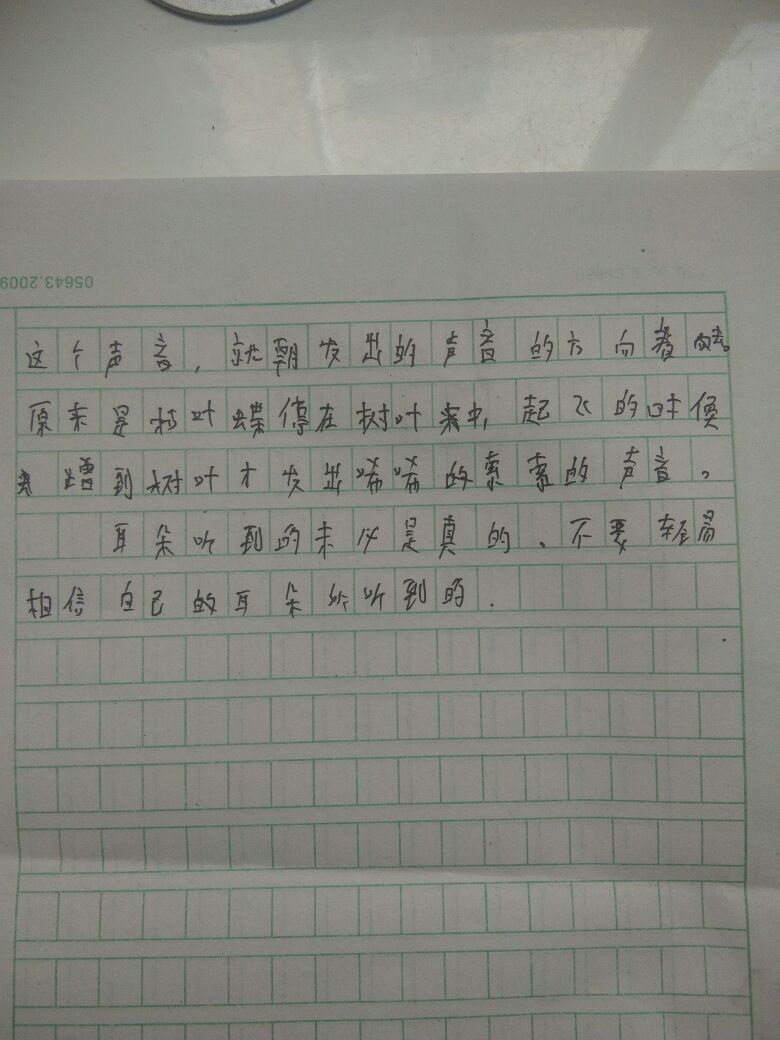 05643.2009
这个声音，就朝发出的声音的方向看去。
原来是枯叶蝶停在树叶中，起飞的时候
到树叶才发出唏唏的索索的声音。
耳朵听到的未必是真的、不要轻易
相信自己的耳朵所听到的.